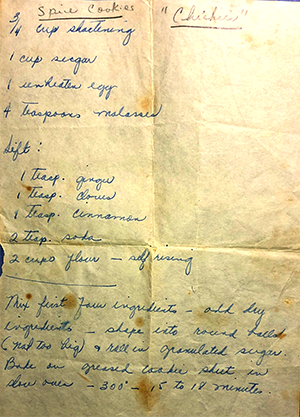 Spice Cookies
3/4 cup shortening
1 cup sugar
1 unbeaten egg
4 teaspoons molasses
Sift:
1 teasp. ginger
1 teasp. cloves
1 teasp. cinnamon
2 teasp. soda
2 cups flour – self rising
Mix first four ingredients – add dry
ingredients – shape into round balls
(not too big) & roll in granulated sugar.
Bake on greased cookie sheet in
slow oven – 300° – 15 to 18 minutes.